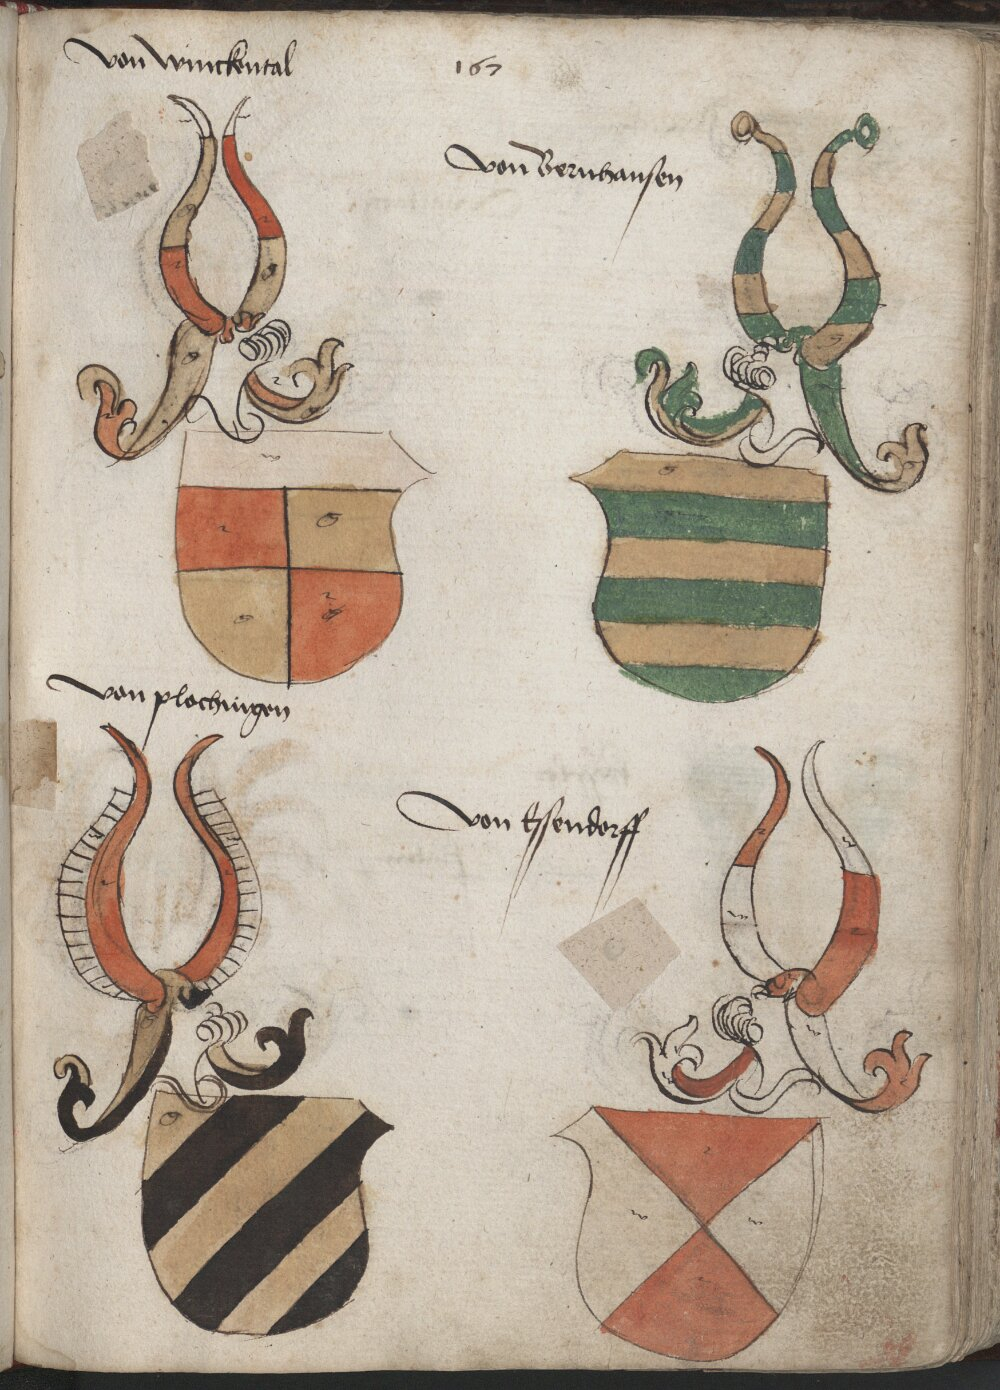 von Winckental
167
von Bernhausen
von plochingen
von Essendorff